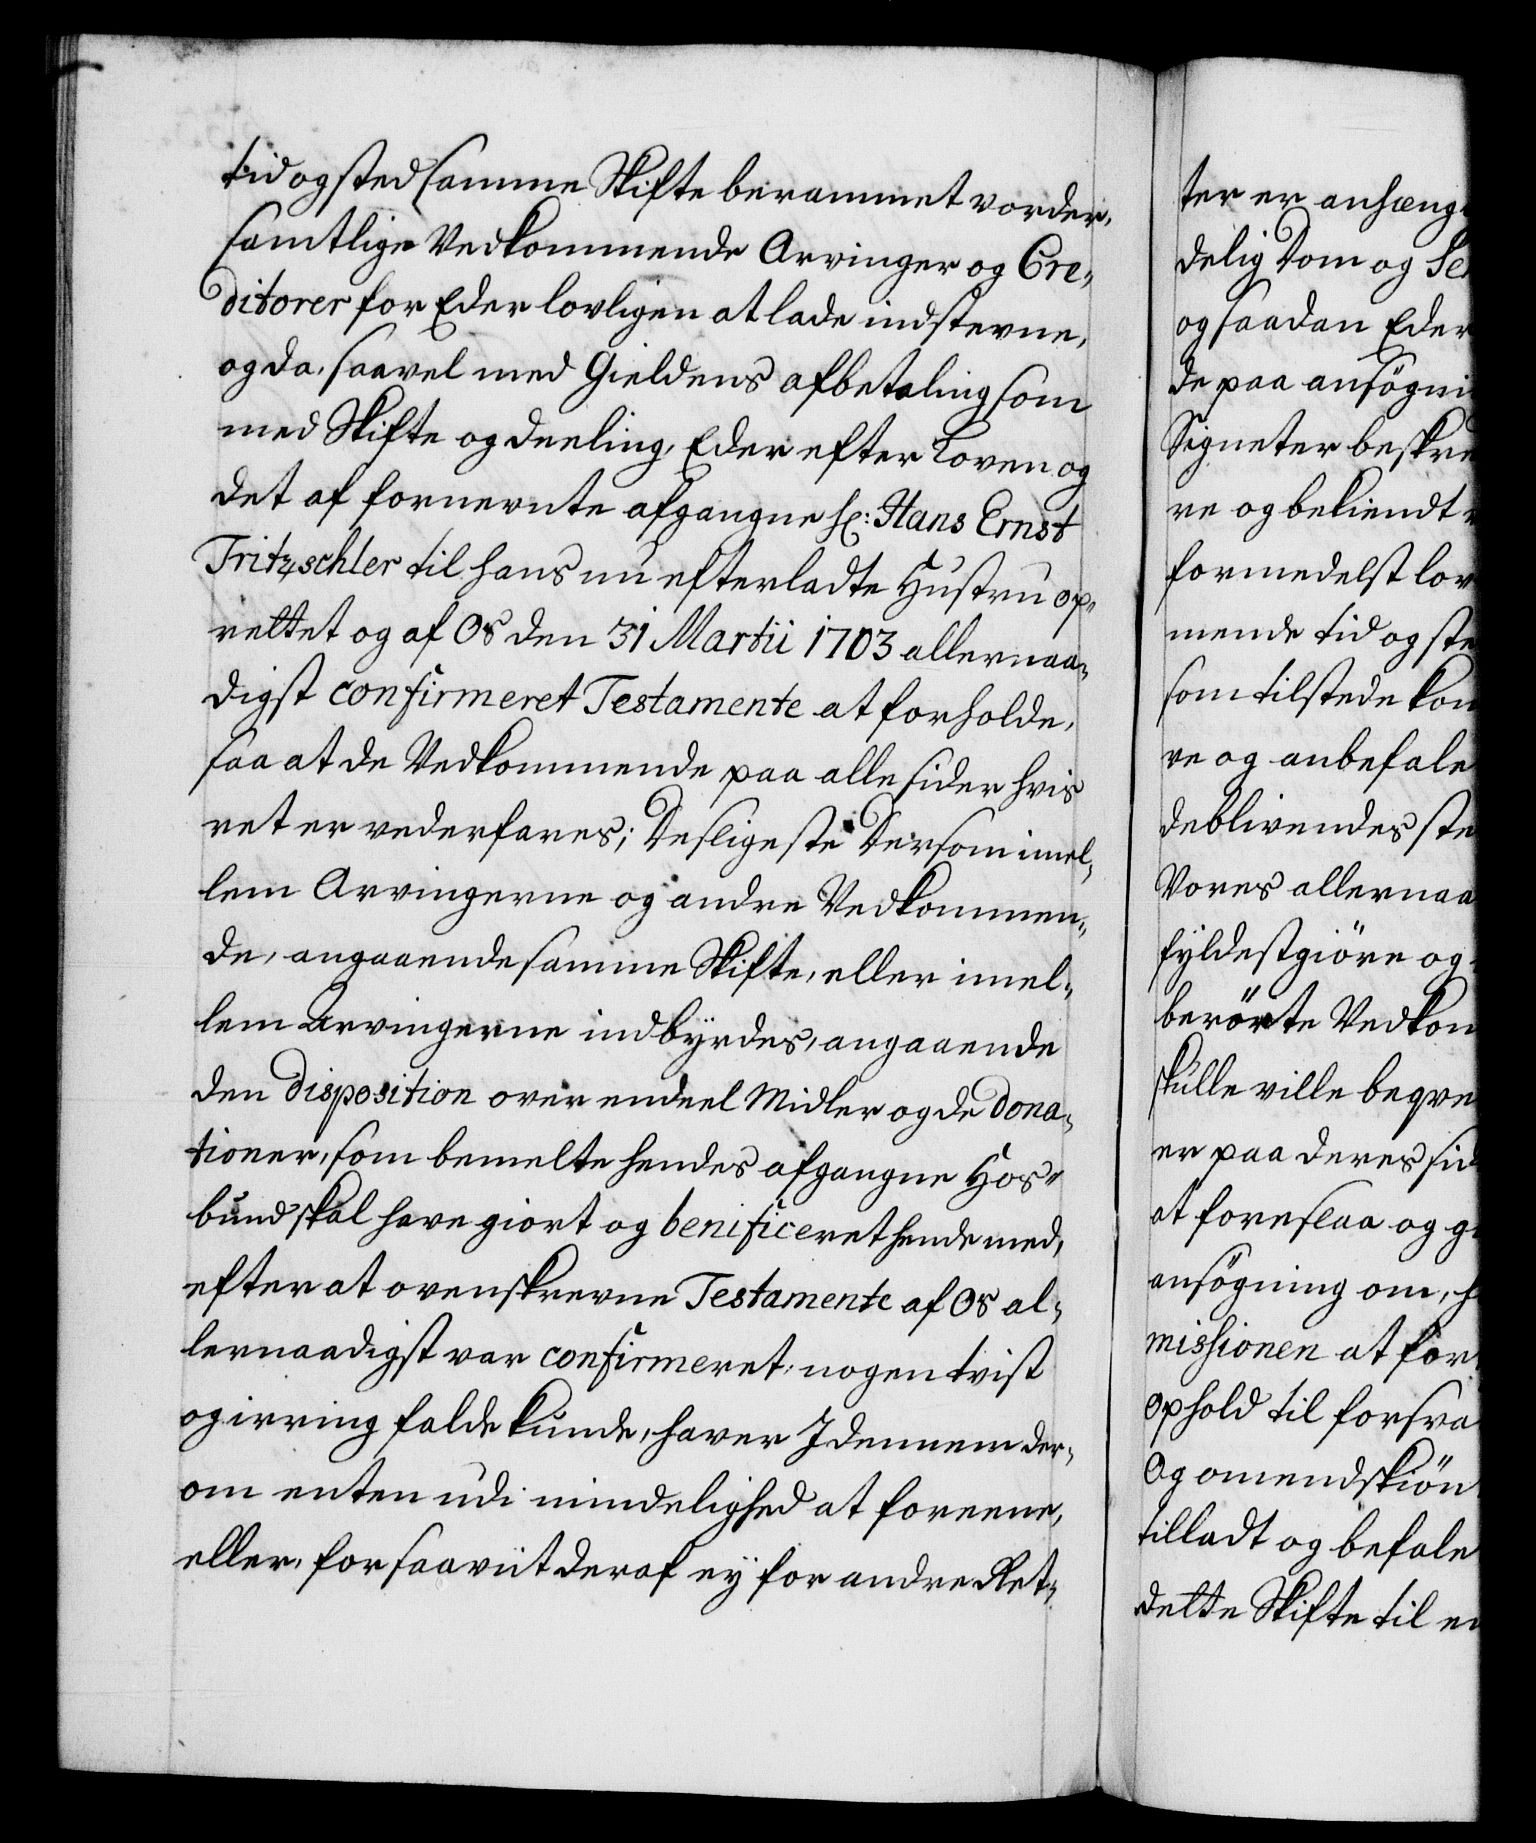 tid og sted samme Skifte berammet vorder,
samtlige Vedkommende Arvinger og Cre,
ditorer for Eder lovligen at lade indstevne,
og da, saavel med Gieldens afbetaling som
med Skifte og deeling, Eder efter Loven og
det af fornevnte afgangne Sl: Hans Ernst
Tritzschler til hans nu efterladte Hustru op,
rettet og af Os den 31 Martii 1703 allernaa,
digst confirmeret Testamente at forholde,
saa at de Vedkommende paa alle sider hvis
ret er vederfares; Desligeste Dersom imel,
lem Arvingerne og andre Vedkommen,
de, angaaende samme Skifte, eller imel,
lem Arvingerne indbÿrdes, angaaende
den disposition over endeel Midler og de dona,
tioner, som bemelte hendes afgangne Hos,
bund skal have giort og benificeret hende med,
efter at ovenskrevne Testamente af Os al,
lernaadigst var confirmeret, nogen tvist
og irring falde kunde, haver I dennem der,
om enten udi mindelighed at foreene,
eller, for saaviit deraf eÿ for andre Ret,
ter er anhæng
delig Dom og Se
og saadan Eder
de paa ansögni
Signeter beskre
re og bekiendt
formedelst lov
mende tid og ste
som tilstede kom
re og anbefale
deblivendes ste
Vores allernaa
fyldestgiöre og
berörte Vedkom
skulle ville beqve
er paa deres sid
at foreslaa og g
ansögning om, h
missionen at for
ophold til forsva
Og omendskiön
tilladt og befale
dette Skifte til en